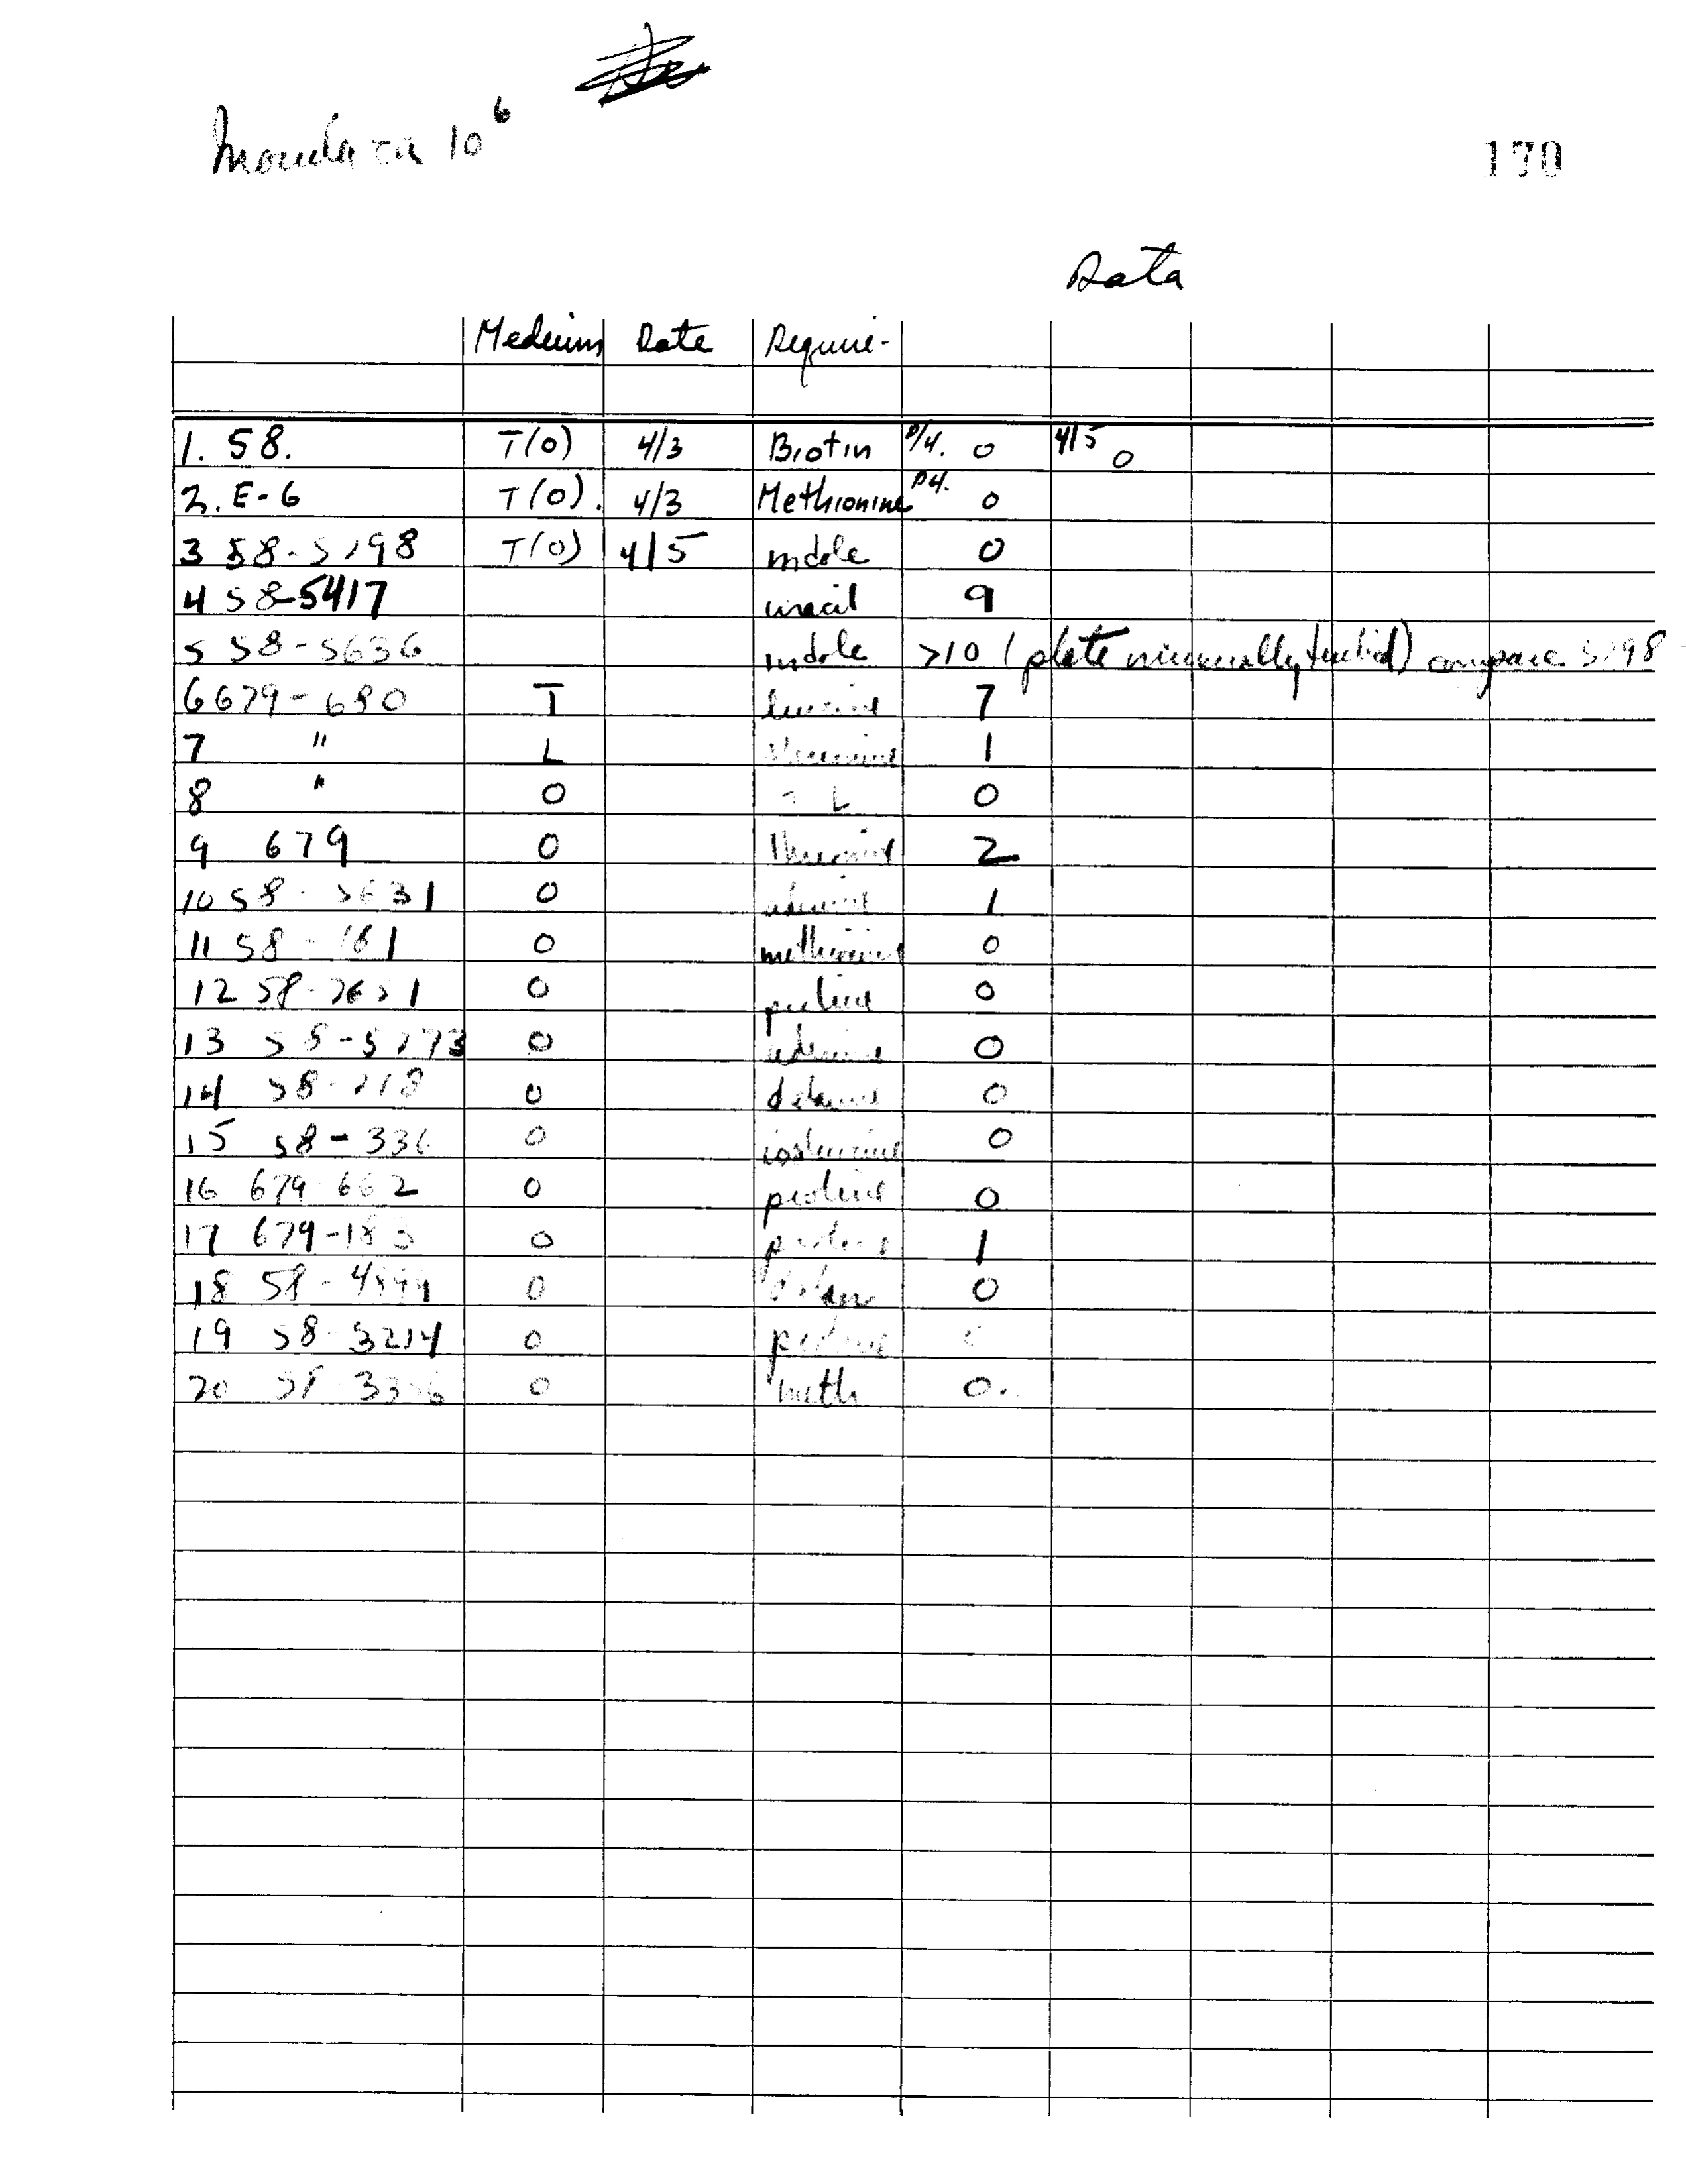 10 6
170
Data
Medium Date Require-
1. 58. T(0) 4/3 Biotin P/4. 0 4/5 0
2. E-6 T(0). 4/3 Methionine P4. 0
3 58-5198 T(0) 4/5 indole 0
4 58-5417 uracil 9
5 58-5636 indole >10 (plate minimally turbid) compare 5198
6 679-680 T leucine 7
7 " L threonine 1
8 " 0 T L 0
9 679 0 threonine 2
10 58-5631 0 adenine 1
11 58-161 0 methionine 0
12 58-2651 0 proline 0
13 58-5173 0 adenine 0
14 58- 0 0
15 58-336 0 isoleucine 0
16 679-662 0 proline 0
17 679-183 0 proline 1
18 58- 0 0
19 58-3214 0 proline 0
20 58- 0 meth 0.